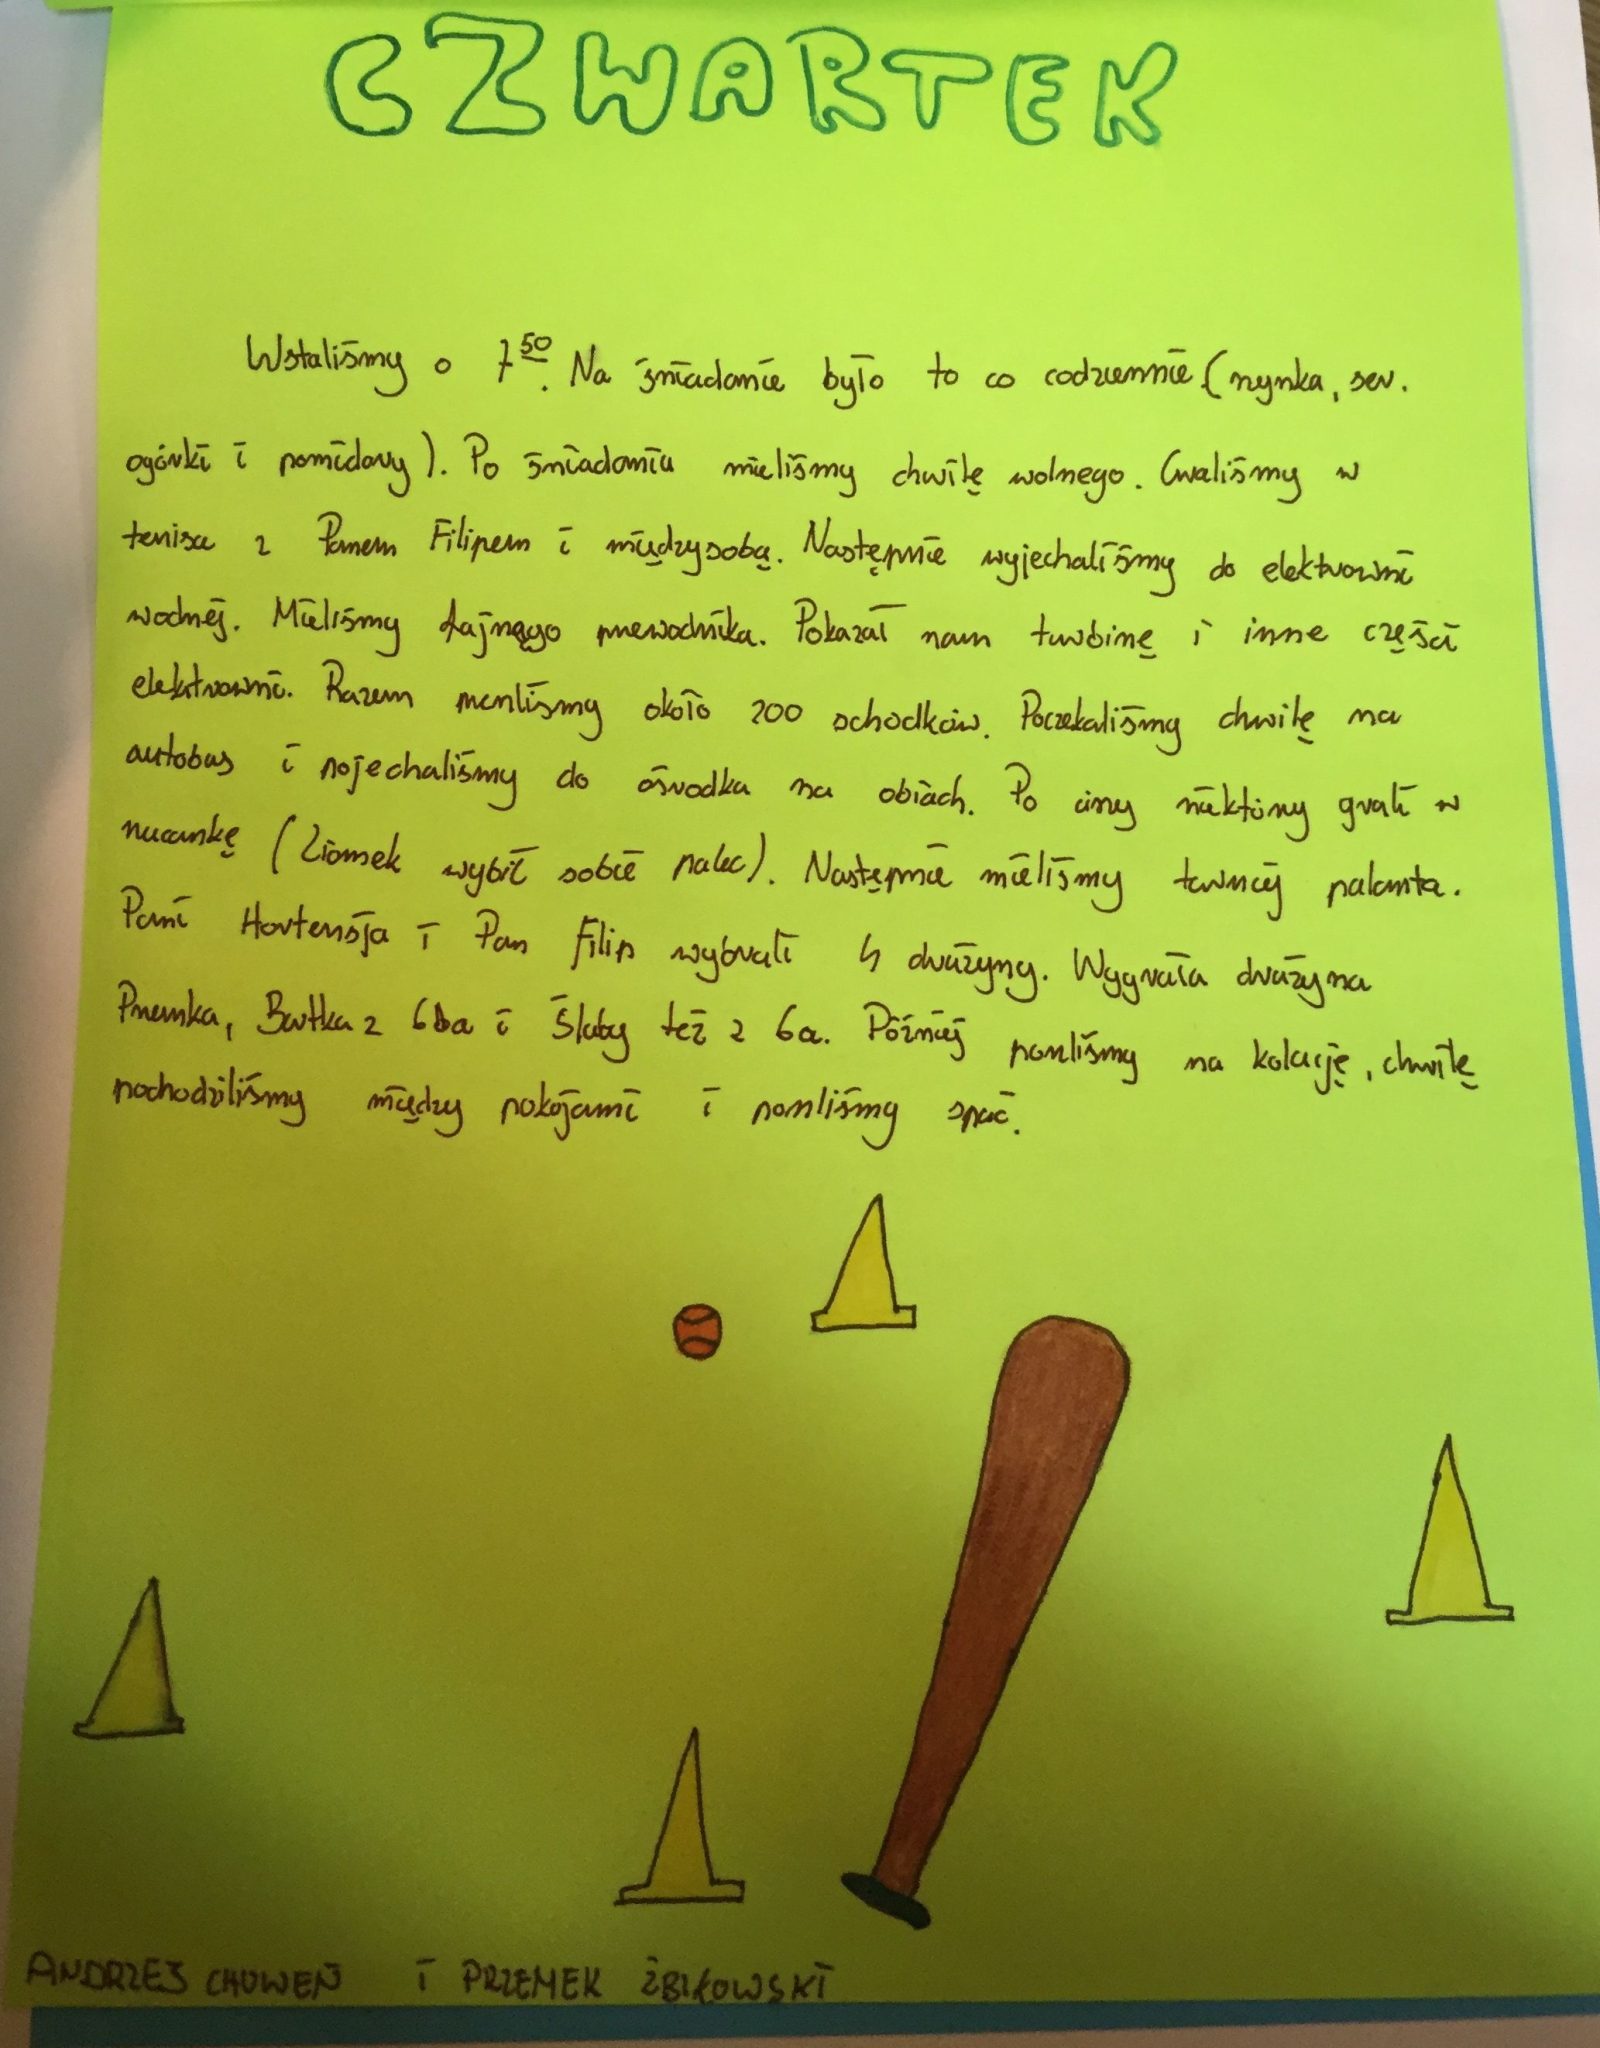 CZWARTEK
Wstaliśmy o 7⁵⁰. Na śniadanie było to co codziennie (szynka, ser.
ogórki i pomidory). Po śniadaniu mieliśmy chwilę wolnego. Graliśmy w
tenisa z Panem Filipem i międzysobą. Następnie wyjechaliśmy do elektrowni
wodnej. Mieliśmy fajnego przewodnika. Pokazał nam turbinę i inne części
elektrowni. Razem przeszliśmy około 200 schodków. Poczekaliśmy chwilę na
autobus i pojechaliśmy do ośrodka na obiad. Po ciszy niektórzy grali w
rucankę (Ziomek wybił sobie palec). Następnie mieliśmy turniej palanta.
Pani Hortensja i Pan Filip wybrali 4 drużyny. Wygrała drużyna
Przemka, Bartka z 6ba i Śluby też z 6a. Później poszliśmy na kolację, chwilę
pochodziliśmy między pokojami i poszliśmy spać.
ANDRZEJ CHUWEŃ i PRZEMEK ŻBIKOWSKI